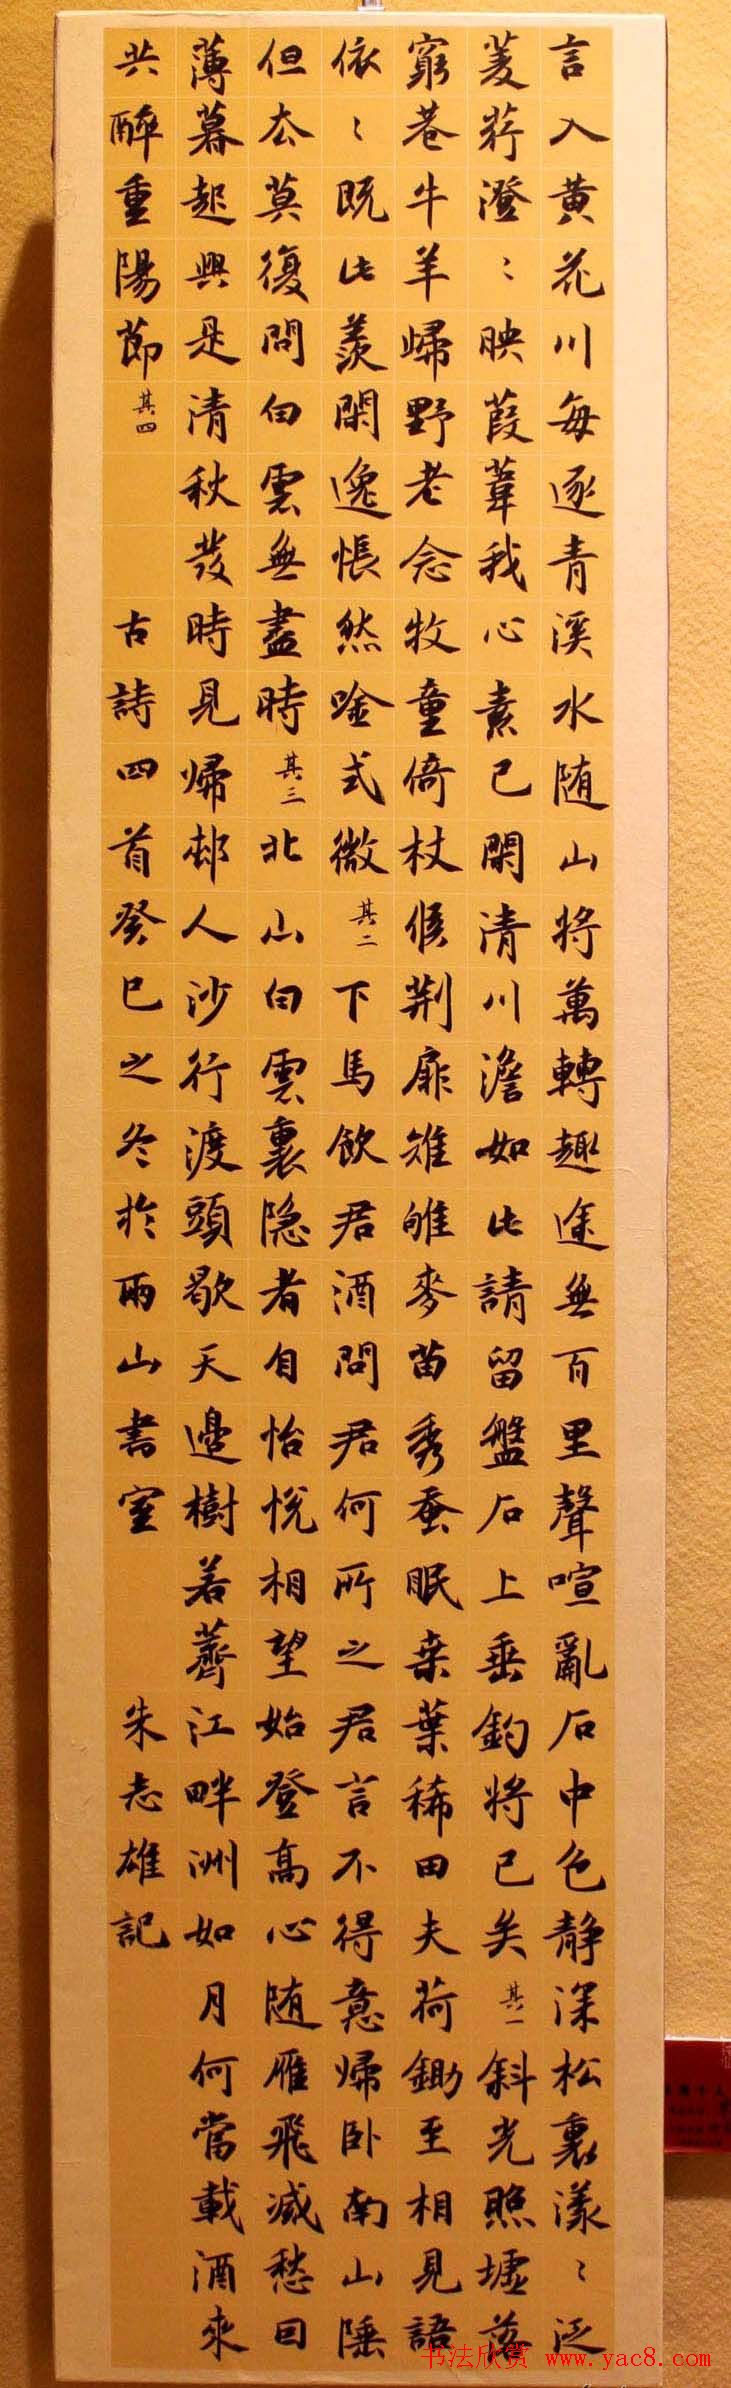 言入黄花川每逐青溪水随山將萬轉趣途無百里聲喧亂石中色静深松裏漾〻泛
菱荇澄〻映葭葦我心素已閑清川澹如此請留盤石上垂釣將已矣其一斜光照墟落
窮巷牛羊歸野老念牧童倚杖候荆扉雉雊麥苗秀蚕眠桑葉稀田夫荷鋤至相見語
依〻既此羨閑逸悵然唫式微其二下馬飲君酒問君何所之君言不得意歸卧南山陲
但去莫復問白雲無盡時其三北山白雲裏隐者自怡悦相望始登高心随雁飛滅愁因
薄暮起興是清秋發時見歸邨人沙行渡頭歇天邊樹若薺江畔洲如月何當載酒來
共醉重陽節其四 古詩四首癸巳之冬於雨山書室 朱志雄記
书法欣赏 www.yac8.com